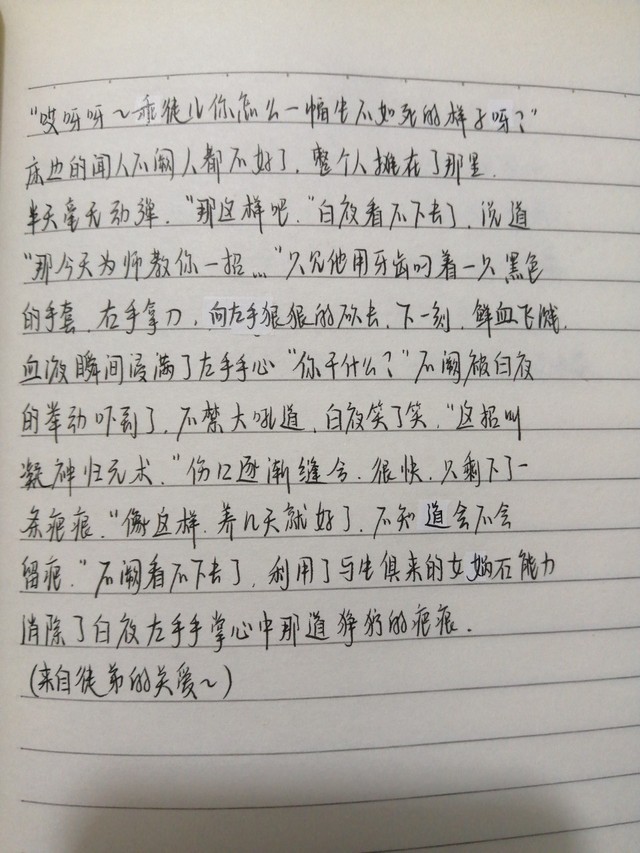 “哎呀呀～乖徒儿你怎么一幅生不如死的样子呀?”
床边的闻人不阙人都不好了，整个人摊在了那里，
半天毫无动弹．“那这样吧．”白夜看不下去了，说道
“那今天为师教你一招…”只见他用牙齿叼着一只黑色
的手套，右手拿刀，向左手狠狠的砍去，下一刻，鲜血飞溅，
血液瞬间浸满了左手手心“你干什么?”不阙被白夜
的举动吓到了，不禁大吼道，白夜笑了笑，“这招叫
凝神归元术．”伤口逐渐缝合．很快，只剩下了一
条疤痕．“像这样．养几天就好了，不知道会不会
留疤．”不阙看不下去了，利用了与生俱来的女娲石能力
消除了白夜左手手掌心中那道狰狞的疤痕．
(来自徒弟的关爱～)